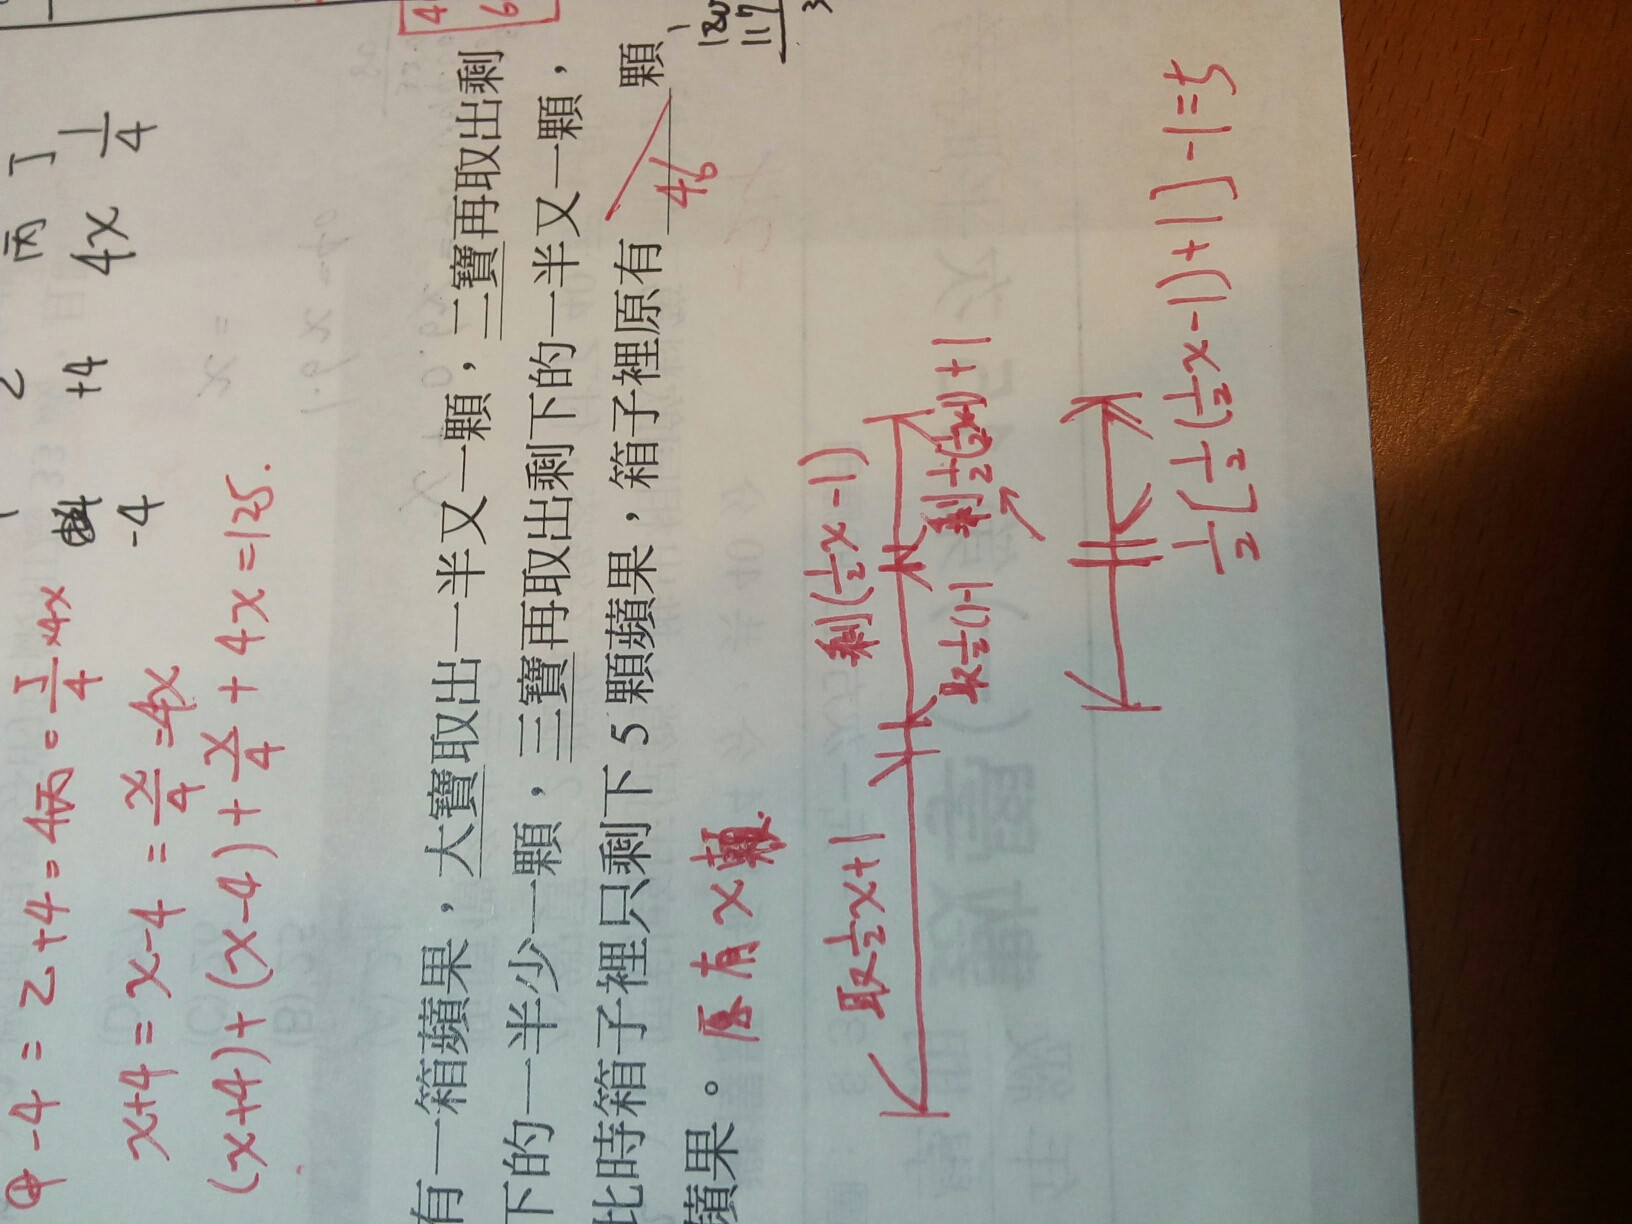 丙 丁
+4 4x 1/4
-4
-4 = 乙+4 = 4丙 = 丁/4 ×4x
x+4 = x-4 = x/4 = 4x
(x+4)+(x-4)+x/4+4x=125.
有一箱蘋果，大寶取出一半又一顆，二寶再取出剩
下的一半少一顆，三寶再取出剩下的一半又一顆，
比時箱子裡只剩下 5 顆蘋果，箱子裡原有 46 顆
蘋果。
原有 x 顆.
取 1/2x+1 剩(1/2x-1)
取1/2( )-1 剩1/2(1/2x-1)+1
1/2[1/2(1/2x-1)+1]-1=5